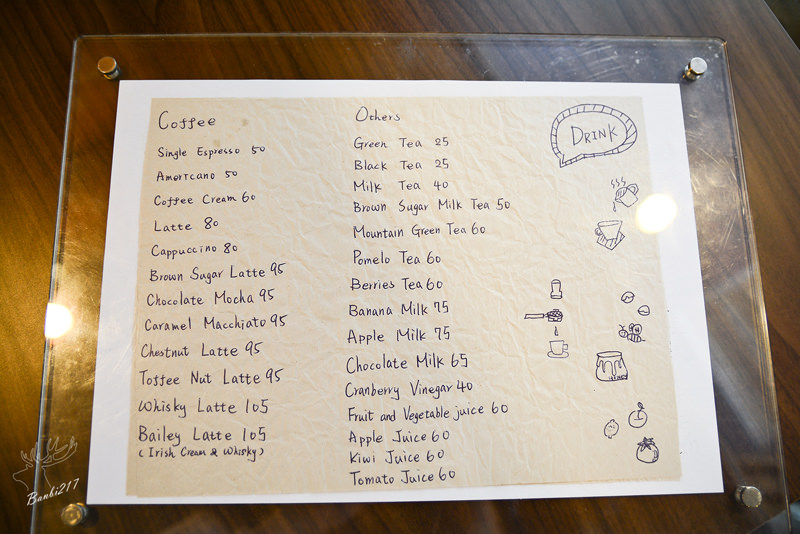 Coffee
Single Espresso 50
Americano 50
Coffee Cream 60
Latte 80
Cappuccino 80
Brown Sugar Latte 95
Chocolate Mocha 95
Caramel Macchiato 95
Chestnut Latte 95
Toffee Nut Latte 95
Whisky Latte 105
Bailey Latte 105
(Irish Cream & Whisky)
Others
Green Tea 25
Black Tea 25
Milk Tea 40
Brown Sugar Milk Tea 50
Mountain Green Tea 60
Pomelo Tea 60
Berries Tea 60
Banana Milk 75
Apple Milk 75
Chocolate Milk 65
Cranberry Vinegar 40
Fruit and Vegetable juice 60
Apple Juice 60
Kiwi Juice 60
Tomato Juice 60
DRINK
Banbi217